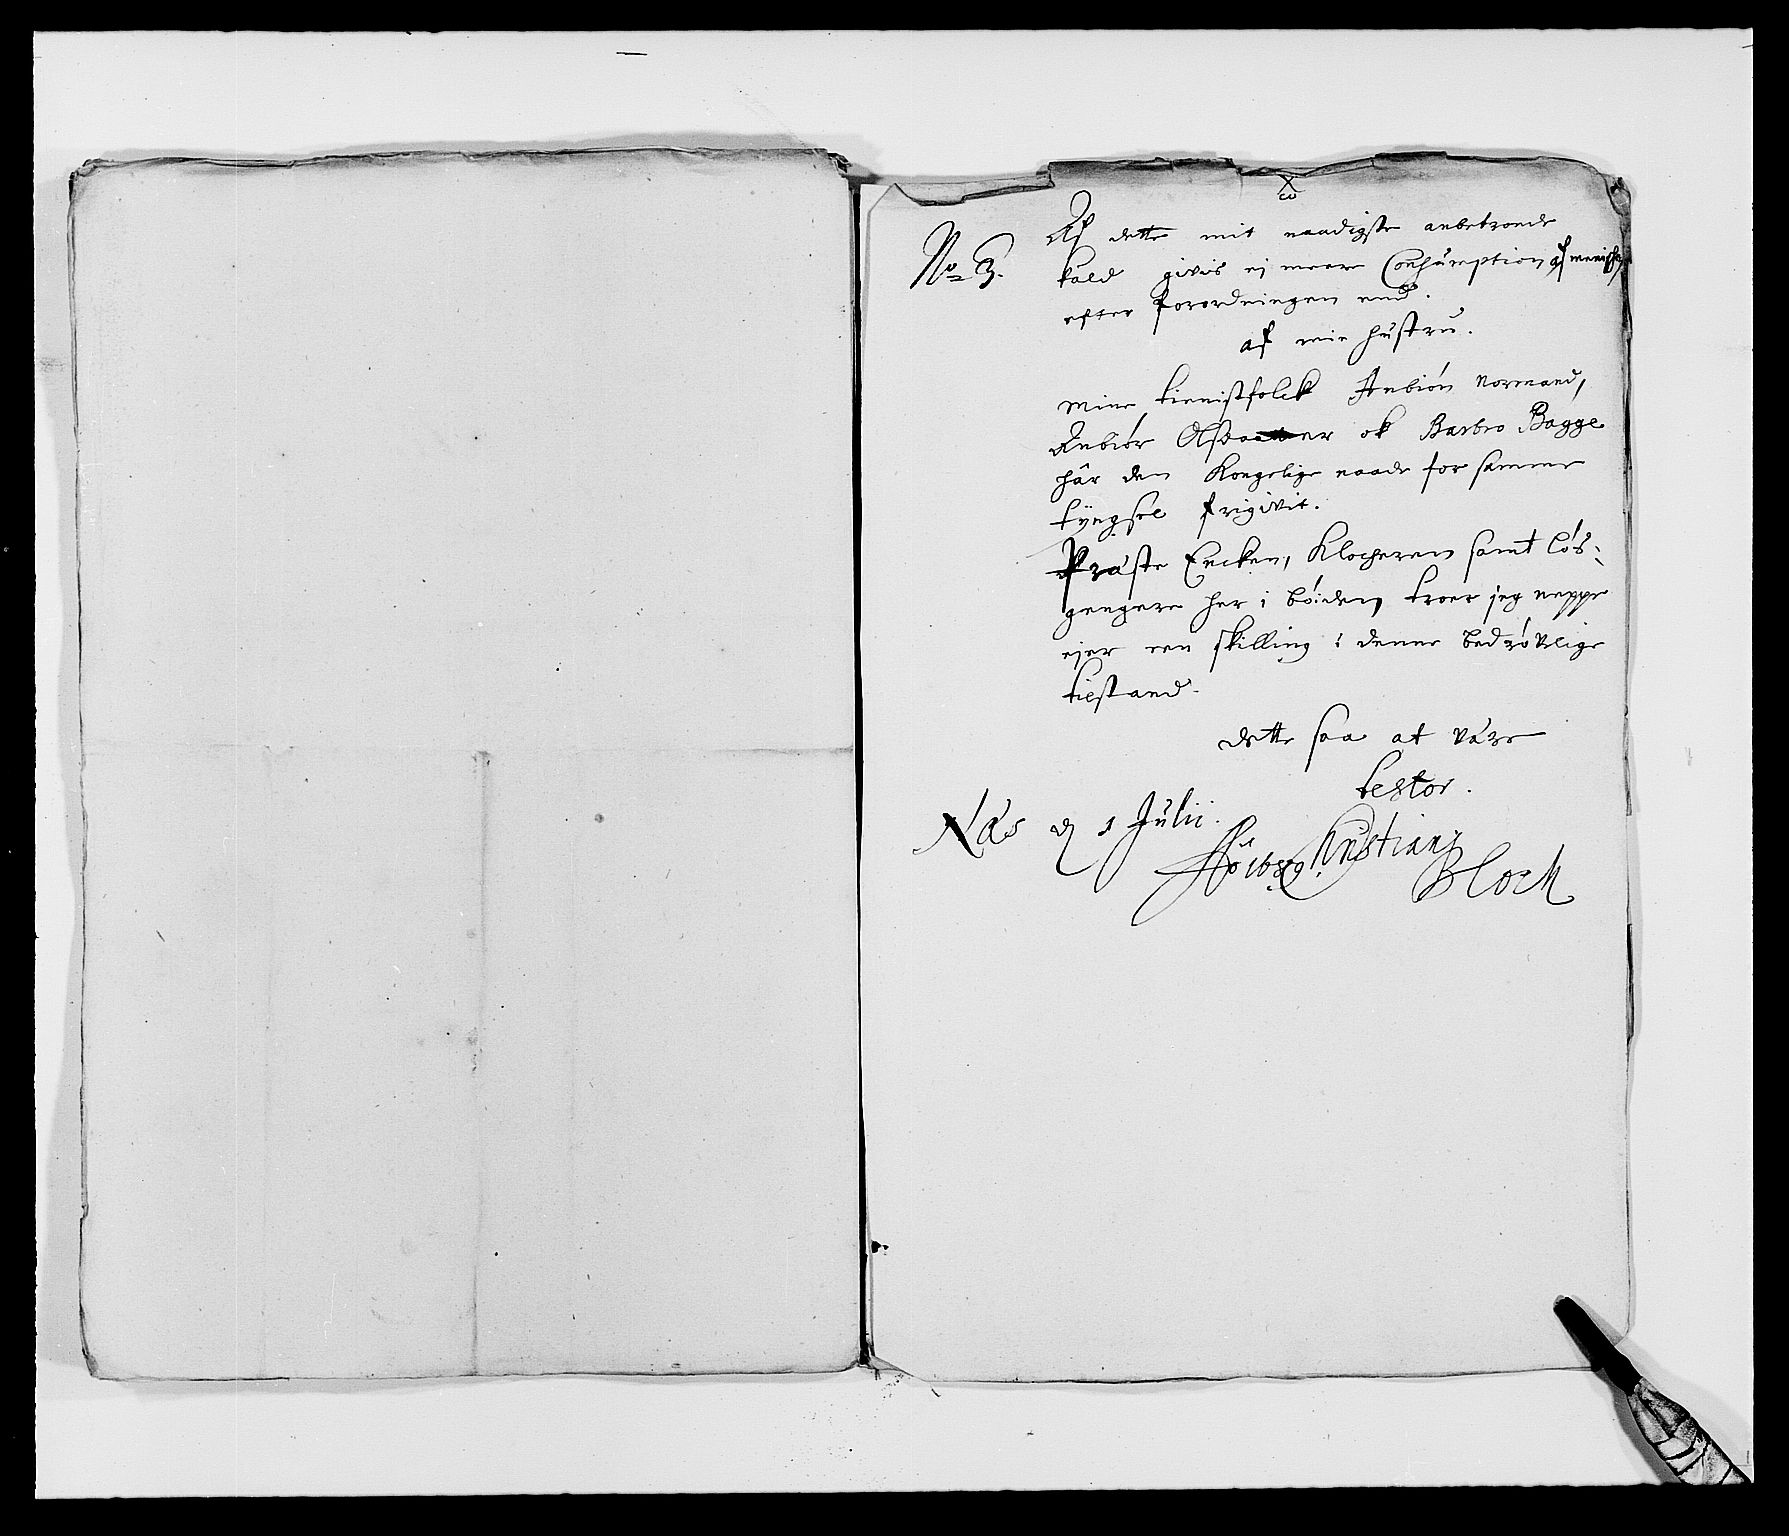 No 3.
Af dette mit naadigste anbetroede
kald givis ej meere Consumption af
efter forordningen end.
af min hustru.
Mine tienistfolck Anbiön Normand,
Anbiör ok Barbro Bagge
hâr den Kongelige naade for samme
tÿngsel frigivit.
Præste Encken, Klocheren samt lös-
gengere her i böiden, troer jeg neppe
ejer een skilling i denne bedröfvlige
tilstand.
dette saa at være
testor.
Näs d 1 Julii.
Aō 1689. Christianj
Bloch